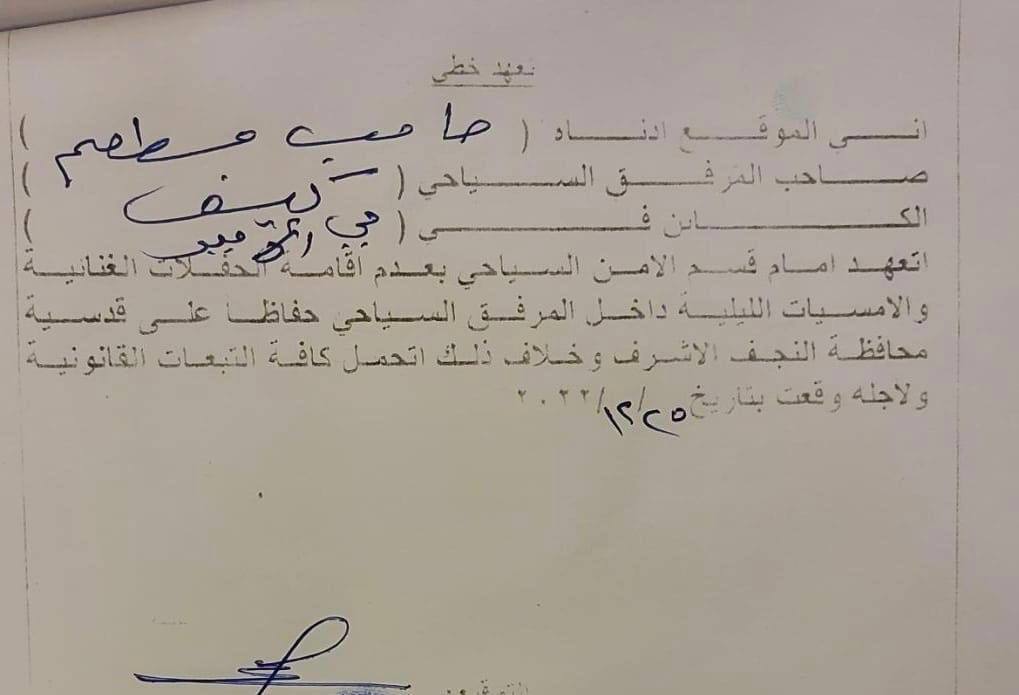 تعهد خطي
اني الموقع ادناه ( صاحب مطعم )
صاحب المرفق السياحي ( )
الكائن في ( حي الامير )
اتعهد امام قسم الامن السياحي بعدم اقامة الحفلات الغنائية
والامسيات الليلية داخل المرفق السياحي حفاظا على قدسية
محافظة النجف الاشرف وخلاف ذلك اتحمل كافة التبعات القانونية
ولاجله وقعت بتاريخ ٢٥/١٢/٢٠٢٢
التوقيع: